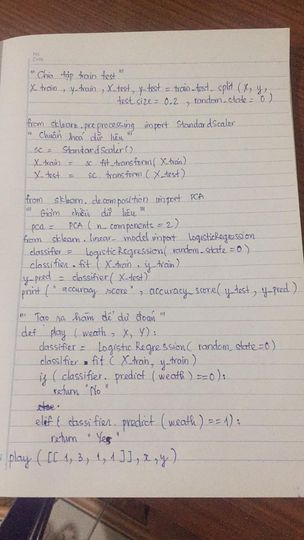 "Chia tập train test"
X_train, y_train, X_test, y_test = train_test_split (x, y,
test_size = 0.2, random_state = 0)
from sklearn.preprocessing import StandardScaler
"Chuẩn hoá dữ liệu"
sc = StandardScaler()
X_train = sc fit_transform (X_train)
X_test = sc. transform (X_test)
from sklearn. decomposition import PCA
"Giảm chiều dữ liệu"
pca = PCA (n_components = 2)
from sklearn. linear_model import LogisticRegression
classifier = LogisticRegression( random_state=0)
classifier. fit ( X_train, y_train)
y_pred = classifier( X_test)
print ( "accuracy score", accuracy_score( y_test, y_pred)
"Tạo ra hàm để dự đoán"
def play ( weath, X, Y):
classifier = Logistic Regression( random_state=0)
classifier. fit ( X_train, y_train)
if ( classifier. predict (weath) ==0):
return "No"
else:
elif ( classifier. predict (weath) ==1):
return "Yes"
play ( [[ 1, 3, 1, 1 ]], x, y )